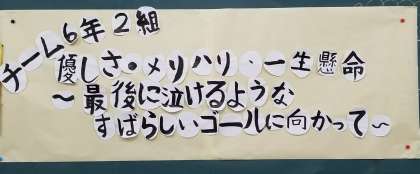 チーム6年2組
優しさ・メリハリ・一生懸命
～最後に泣けるような
すばらしいゴールに向かって～